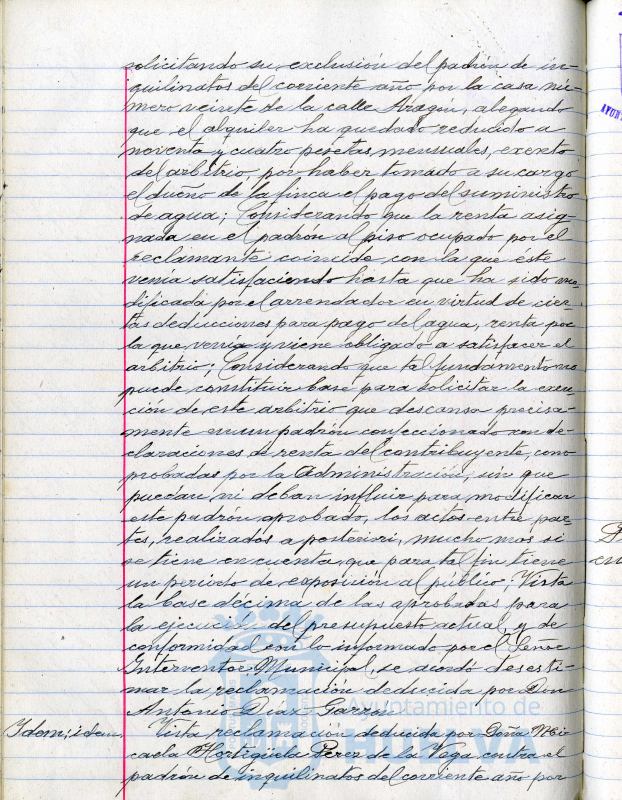 solicitando su exclusión del padrón de in-
quilinatos del corriente año por la casa nú-
mero veinte de la calle Aragón, alegando
que el alquiler ha quedado reducido a
noventa y cuatro pesetas mensuales, exento
del arbitrio, por haber tomado a su cargo
el dueño de la finca el pago del suministro
de agua; Considerando que la renta asig-
nada en el padrón al piso ocupado por el
reclamante coincide con la que éste
venía satisfaciendo hasta que ha sido mo-
dificada por el arrendador en virtud de cier-
tas deducciones para pago del agua, renta por
la que venía y viene obligado a satisfacer el
arbitrio; Considerando que tal fundamento no
puede constituir base para solicitar la exen-
ción de este arbitrio que descansa precisa-
mente en un padrón confeccionado con de-
claraciones de renta del contribuyente, com-
probadas por la Administración, sin que
puedan ni deban influir para modificar
este padrón aprobado, los actos entre par-
tes, realizados a posteriori, mucho mas si
se tiene en cuenta que para tal fin tiene
un periodo de exposición al público; Vista
la base décima de las aprobadas para
la ejecución del presupuesto actual, y de
conformidad con lo informado por el Señor
Interventor Municipal, se acordó desesti-
mar la reclamación deducida por Don
Antonio Díaz Garzón
Idem; idem. Vista reclamación deducida por Doña Mi-
caela Hortigüela Pérez de la Vega contra el
padrón de inquilinatos del corriente año por
Ayuntamiento de
HUELVA